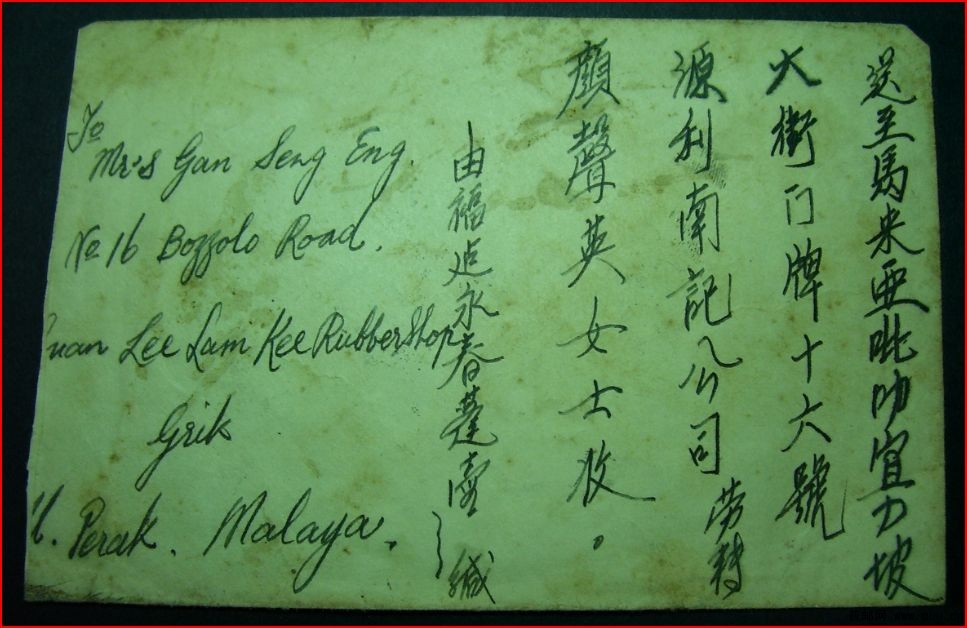 To
Mrs Gan Seng Eng.
No 16 Bozzolo Road.
uan Lee Lam Kee Rubber Shop
Grik
U. Perak. Malaya.
送至馬来亜吡叻宜力坡
大街门牌十六號
源利南記公司
劳轉
顏聲英女士收。
由福建永春蓬壺缄